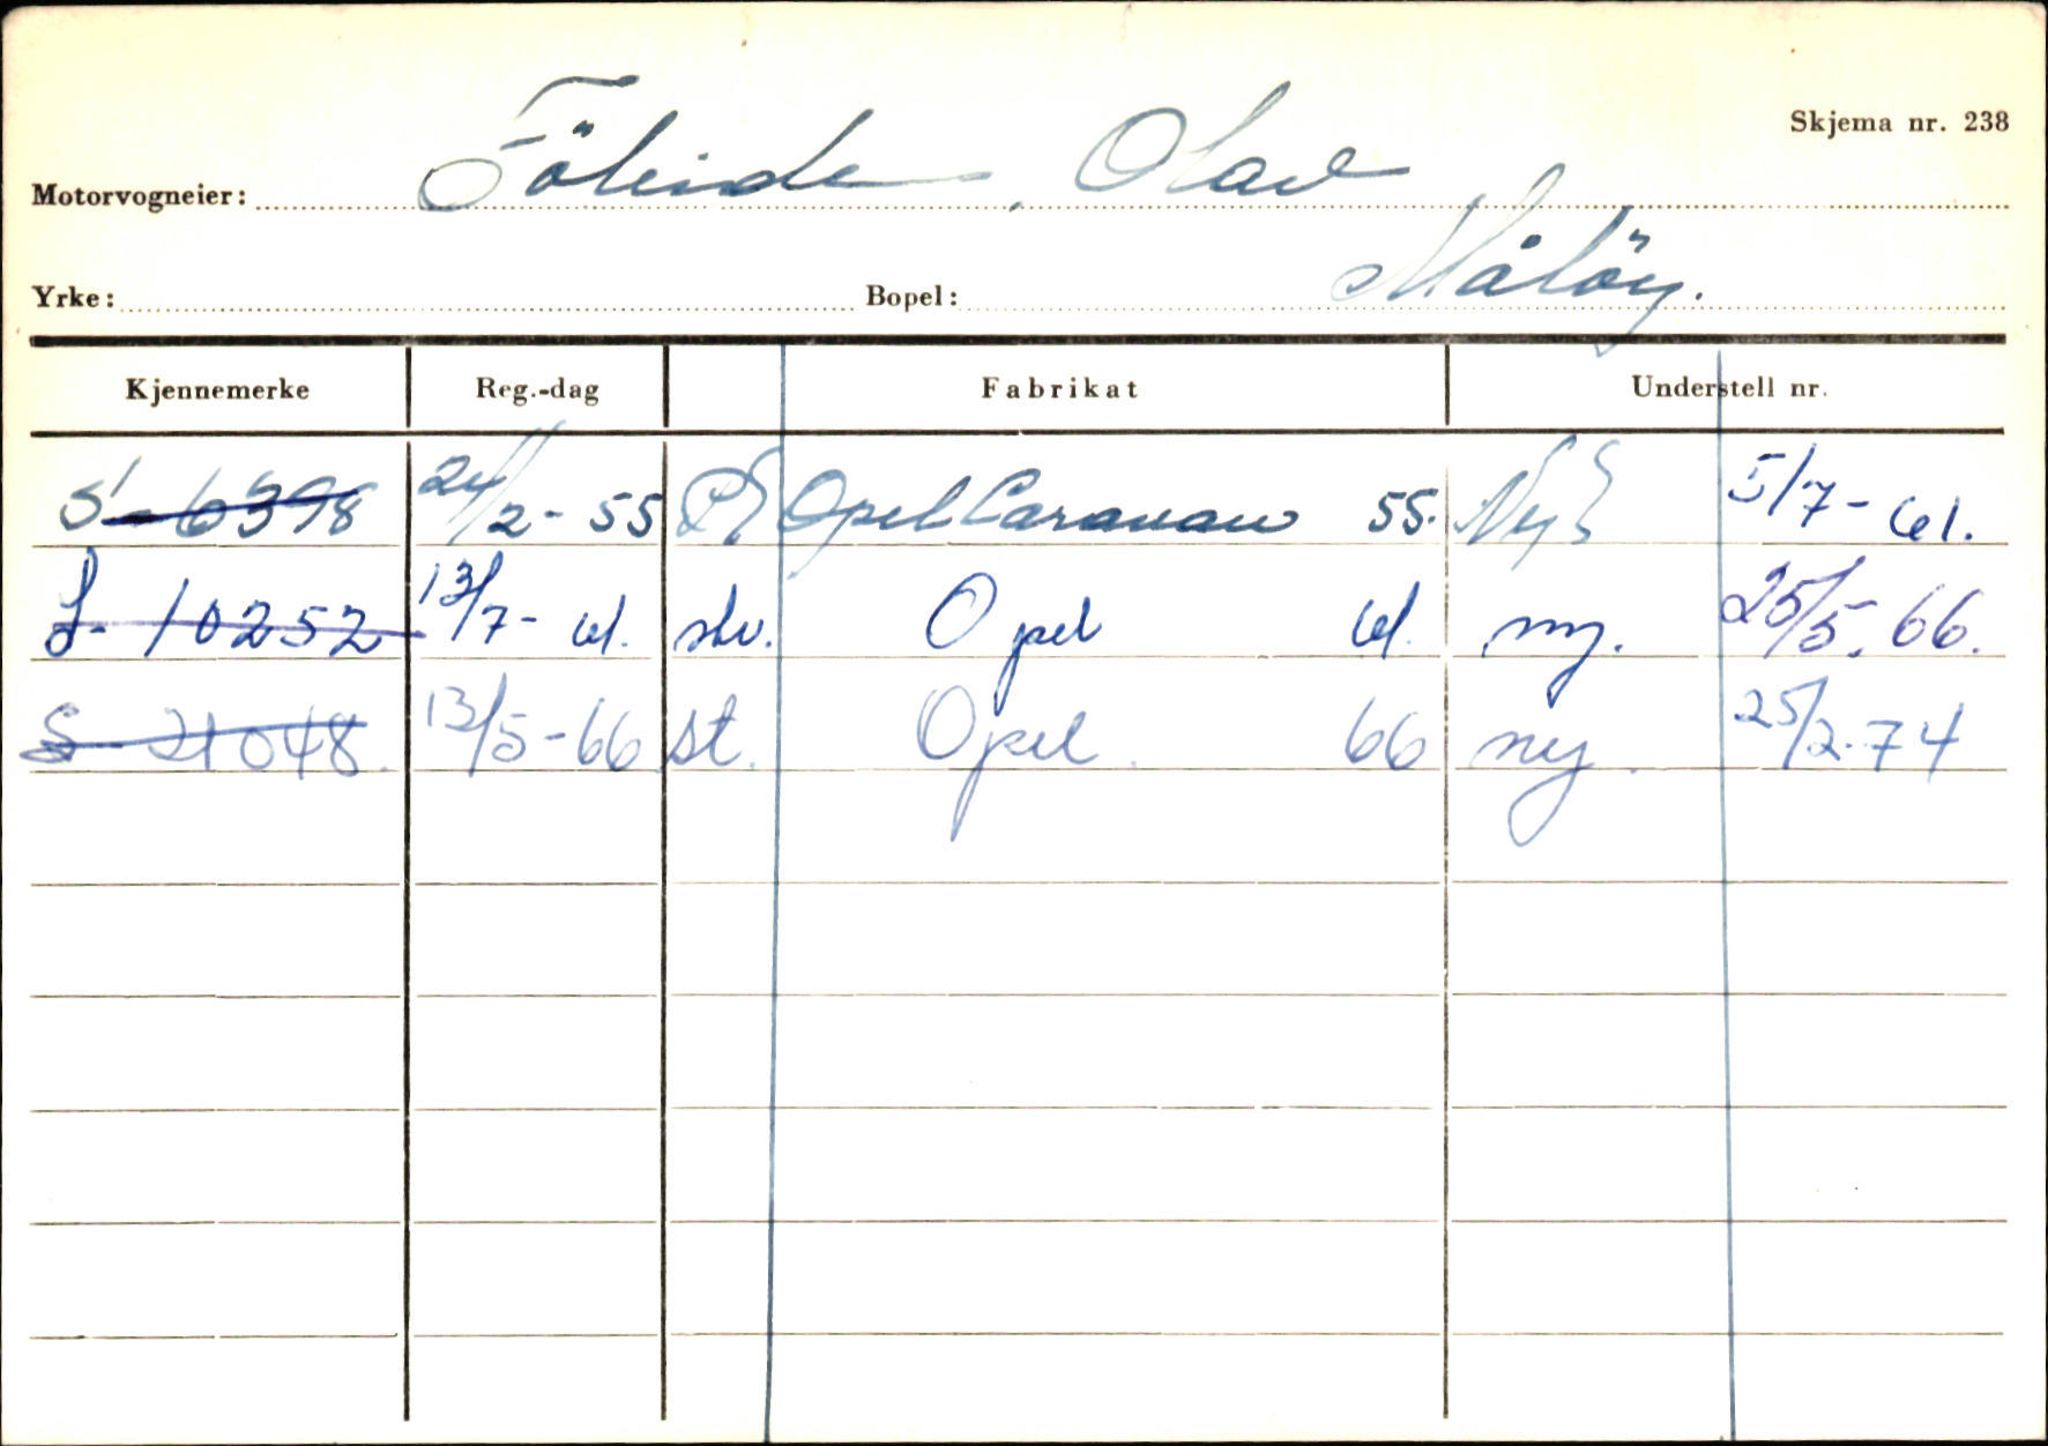 Skjema nr. 238
Motorvogneier: Föleide, Olav
Yrke: Bopel: Målöy.
Kjennemerke Reg.-dag Fabrikat Understell nr.
S-6398 24/2-55 Opel Caravan 55. Ny 5/7-61.
S-10252 13/7-61. stv. Opel 61. ny. 25/5.66.
S-21048. 13/5-66 st. Opel. 66 ny. 25/2-74